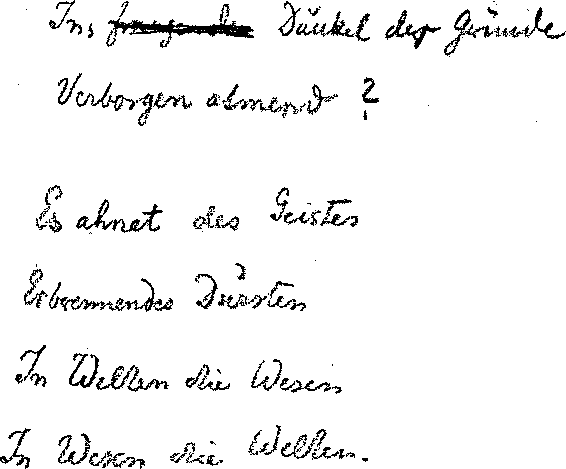 Ins Dunkel der Gründe
Verborgen atmend?
Es ahnet des Geistes
Erbrennendes Dürsten
In Welten die Wesen
In Wesen die Welten.